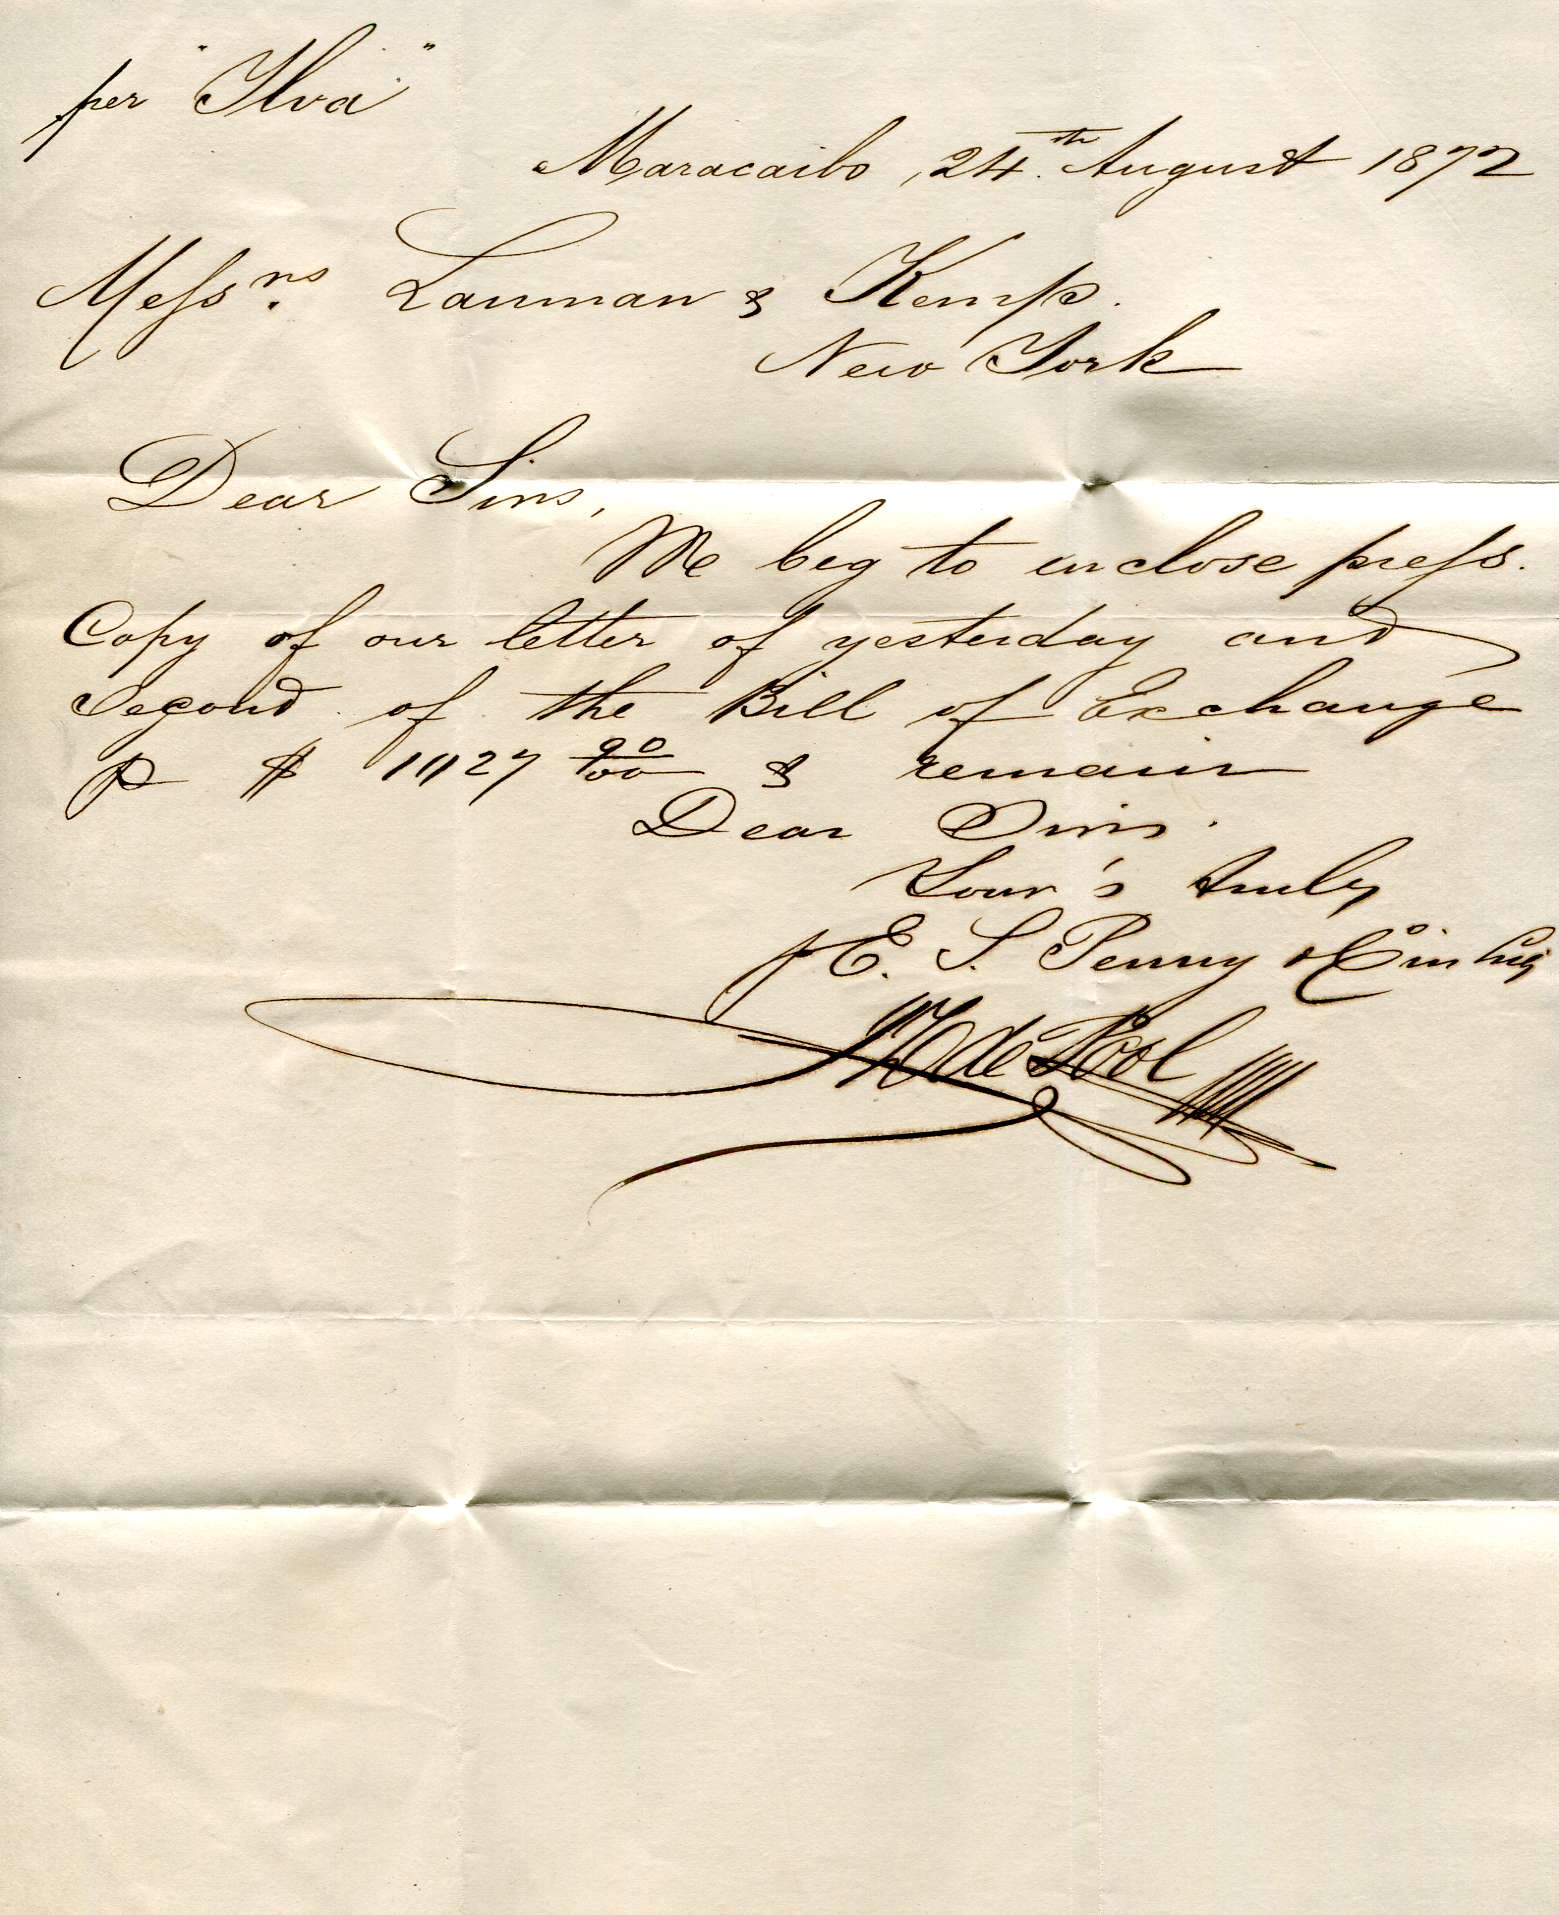 per "Ilva"
Maracaibo, 24th. August 1872
Messrs. Lanman & Kemp.
New York
Dear Sirs,
We beg to enclose press.
Copy of our letter of yesterday and
Second of the Bill of Exchange
p $ 1127 90/100 & remain
Dear Sirs.
Your's truly
p E. S. Penny
de Pool